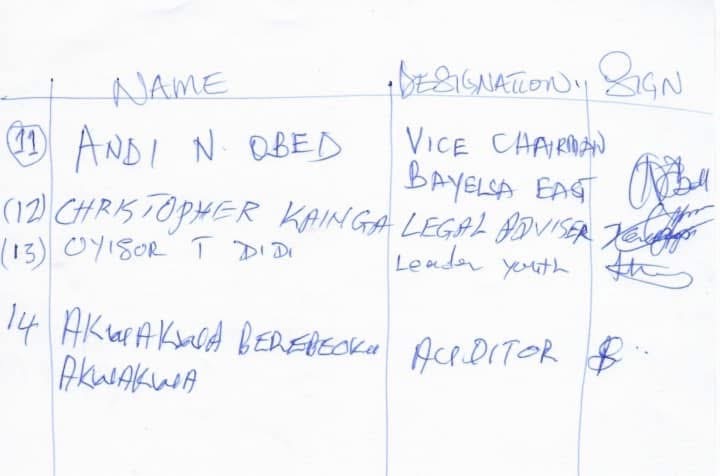 NAME DESIGNATION SIGN
(11) ANDI N. OBED VICE CHAIRMAN
BAYELSA EAST
(12) CHRISTOPHER KAINGA LEGAL ADVISER
(13) OYISOR T DIDI Leader youth
14 AKWAKWA AUDITOR
AKWAKWA